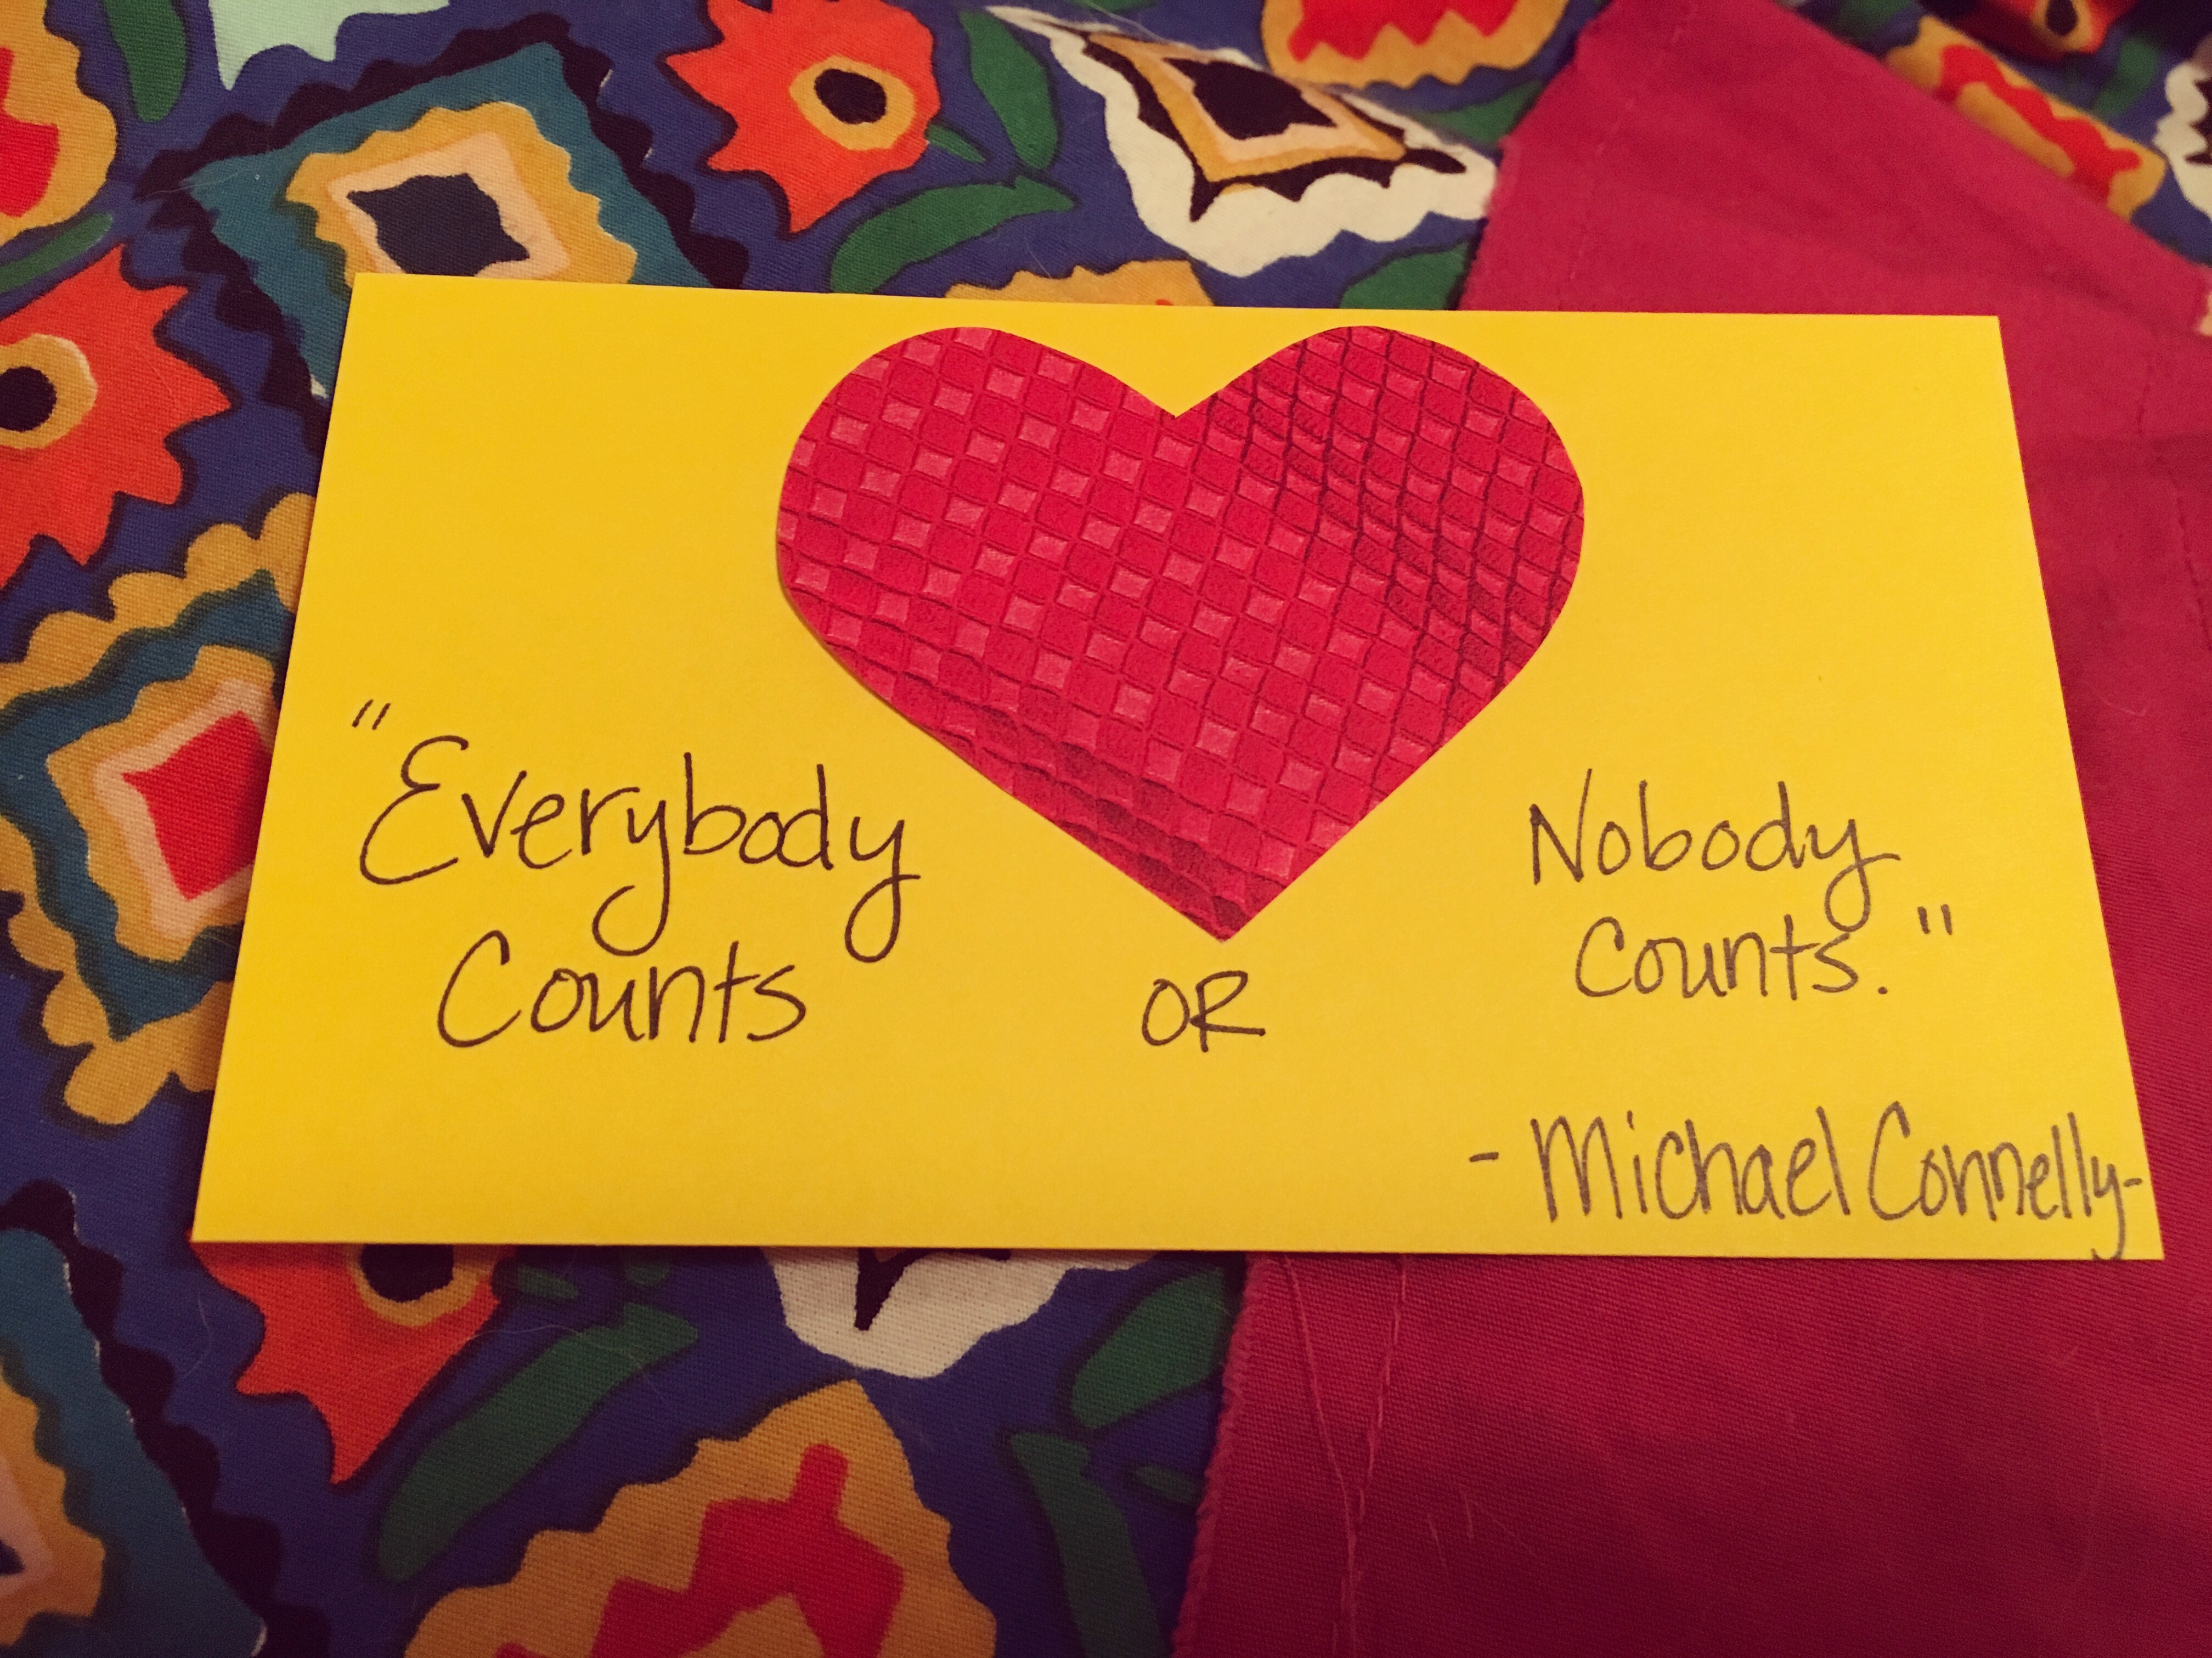 "Everybody
Counts
OR
Nobody
Counts."
- Michael Connelly-